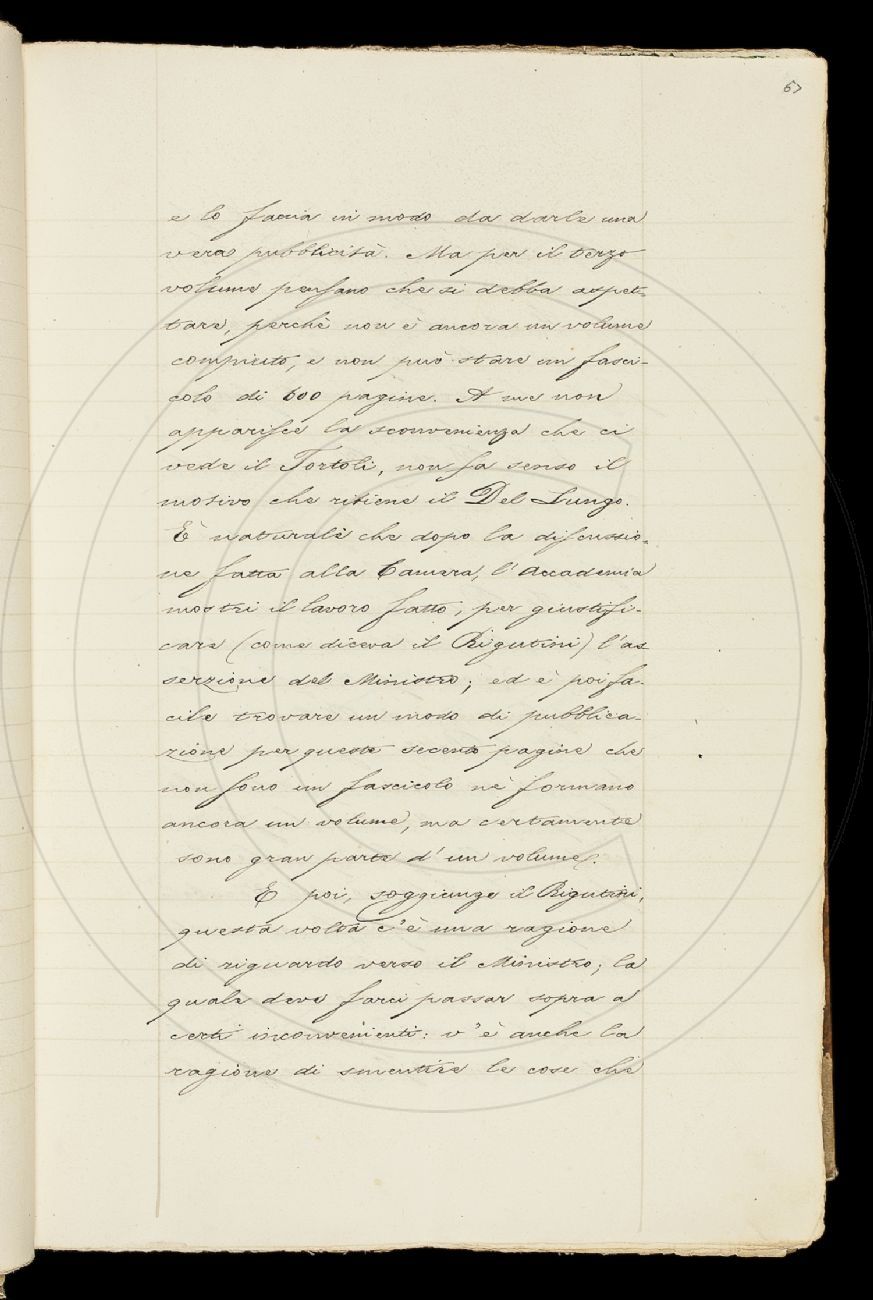 67
e lo faccia in modo da darle una
vera pubblicità. Ma per il terzo
volume pensano che si debba aspet-
tare, perchè non è ancora un volume
compiuto, e non può stare un fasci-
colo di 600 pagine. A me non
apparisce la sconvenienza che ci
vede il Tortoli, non fa senso il
motivo che ritiene il Del Lungo.
È naturale che dopo la discussio-
ne fatta alla Camera, l'Accademia
mostri il lavoro fatto, per giustifi-
care (come diceva il Rigutini) l'as
serzione del Ministro; ed è poi fa-
cile trovare un modo di pubblica-
zione per queste secento pagine che
non sono un fascicolo nè formano
ancora un volume, ma certamente
sono gran parte d'un volume.
E poi, soggiunge il Rigutini,
questa volta c'è una ragione
di riguardo verso il Ministro; la
quale deve farci passar sopra a
certi inconvenienti: v'è anche la
ragione di smentire le cose che